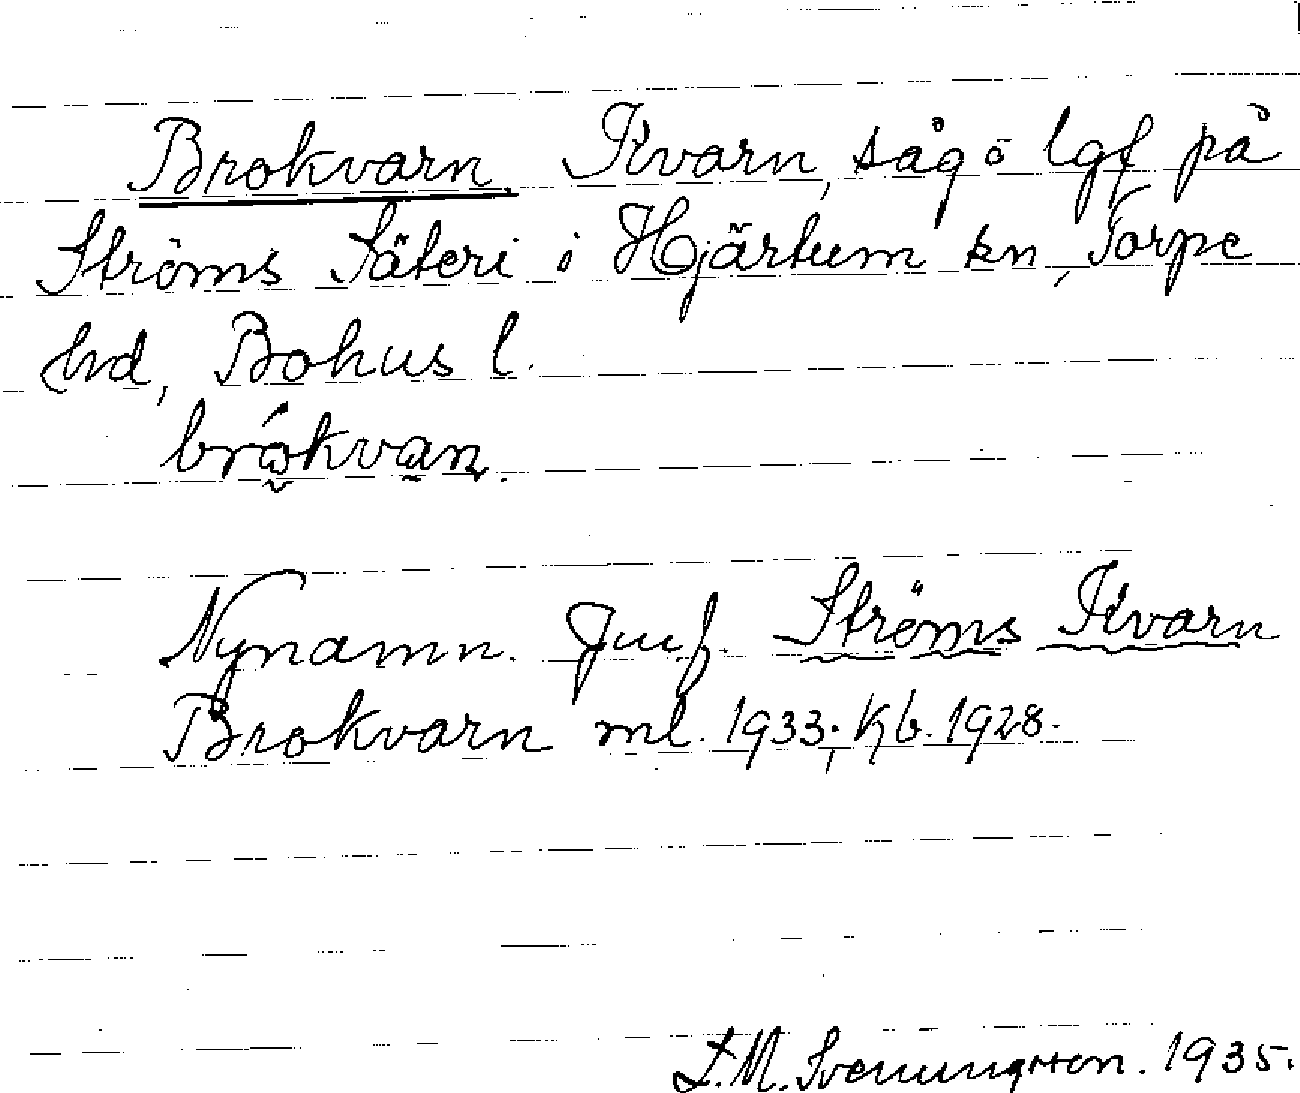 Brokvarn. Kvarn, såg o lgf på
Ströms Säteri i Hjärtum sn, Torpe
hd, Bohus l.
brókvan.
Nynamn. Jmf. Ströms Kvarn
Brokvarn ml. 1933; Kb. 1928.
L.M. Svenungsson. 1935.